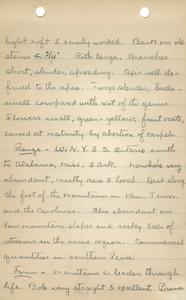 light soft & easily worked. Bark on old
stems < 3/4". Pith large. Branches
short, slender, spreading. Apis well de-
fined to the apex. Twigs slender, buds
small compared with rest of the genus.
Flowers small, green-yellow, fruit ovate,
curved at maturity by abortion of carpels.
Range - W. N.Y. & S. Ontario south
to Alabama, Miss. & Ark. Nowhere very
abundant, mostly rare & local. Best along
the foot of the mountains in Ken. Tenn.
and the Carolinas. Also abundant on
low mountain slopes and rocky beds of
streams in the same region. Commercial
quantities in southern Penn.
Form - maintains a leader through
life. Bole very straight & excellent.